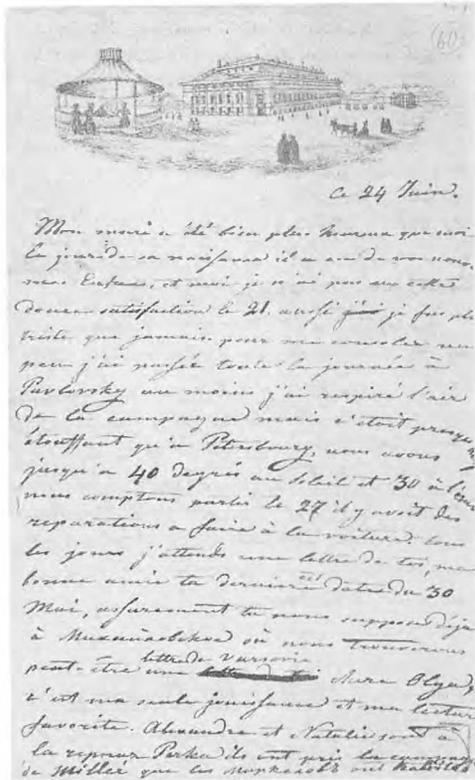 (60)
Ce 24 Juin.
Mon mari a été bien plus heureux que moi
le jour de sa naissance il a eu de vos nouvelles,
mes Enfans, et moi je n'ai pas eu cette
douce satisfaction le 21. aussi je fus plus
triste que jamais pour me consoler un
peu j'ai passée toute la journée à
Pavlovsky au moins j'ai respiré l'air
de la campagne mais c'étoit presqu'aussi
étouffant qu'à Petersbourg, nous avons
jusqu'à 40 degrés au soleil et 30 à l'ombre
nous comptons partir le 27 il y avoit des
reparations a faire à la voiture. tous
les jours j'attends une lettre de toi, ma
bonne amie ta derniere est datée du 30
Mai, assurement tu nous supposes déja
à Михайловское où nous trouverons
peut-être une lettre de Varsovie chere Olga,
c'est ma seule jouissance et ma lecture
favorite. Alexandre et Natalie sont à
la ils ont pris
de Miller que les